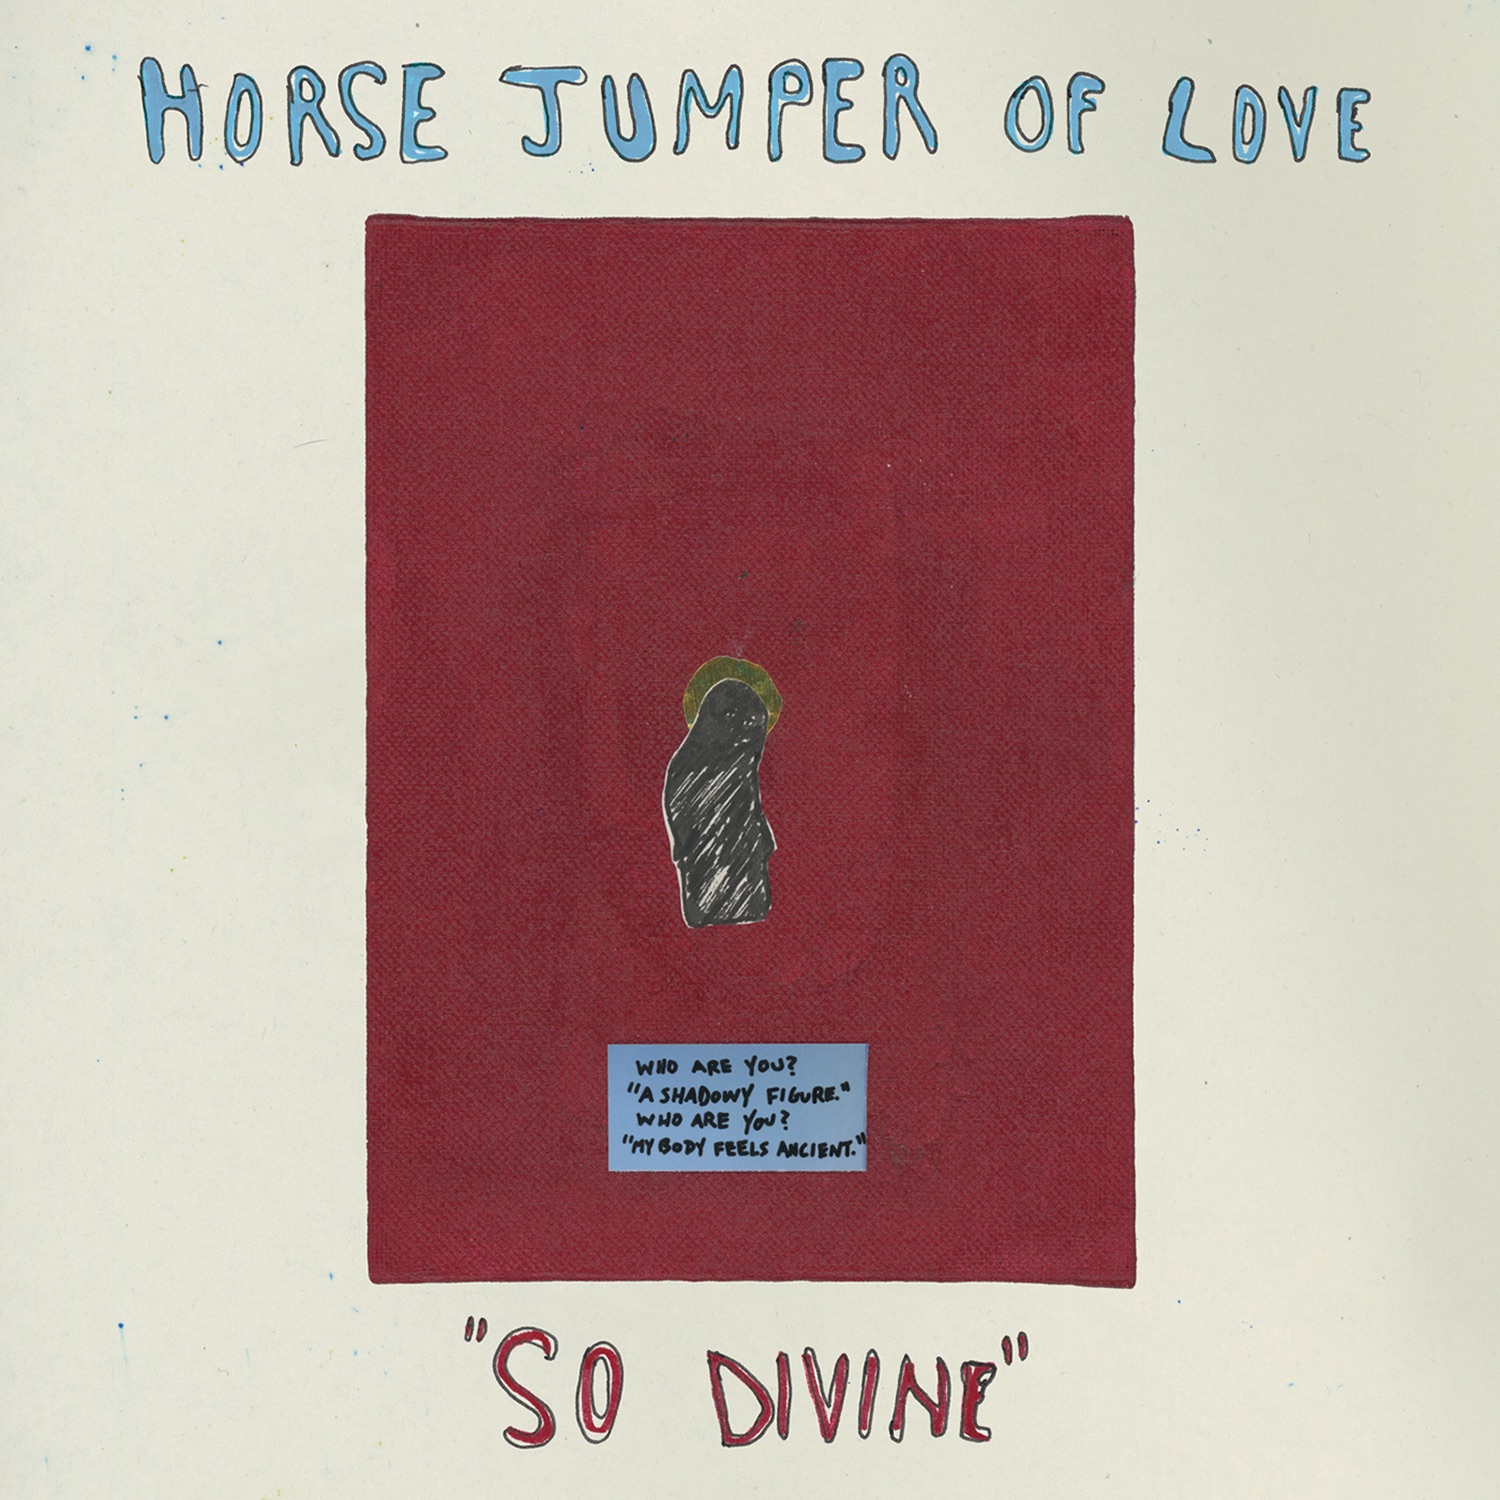 HORSE JUMPER OF LOVE
WHO ARE YOU?
"A SHADOWY FIGURE."
WHO ARE YOU?
"MY BODY FEELS ANCIENT."
"SO DIVINE"